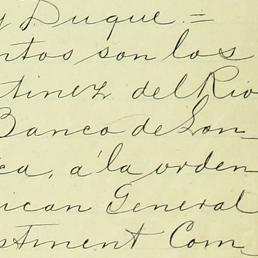 y Duque. =
ntos son los
tinez del Rio
Banco de Lon-
ca, á la orden
ican General
stment Com-